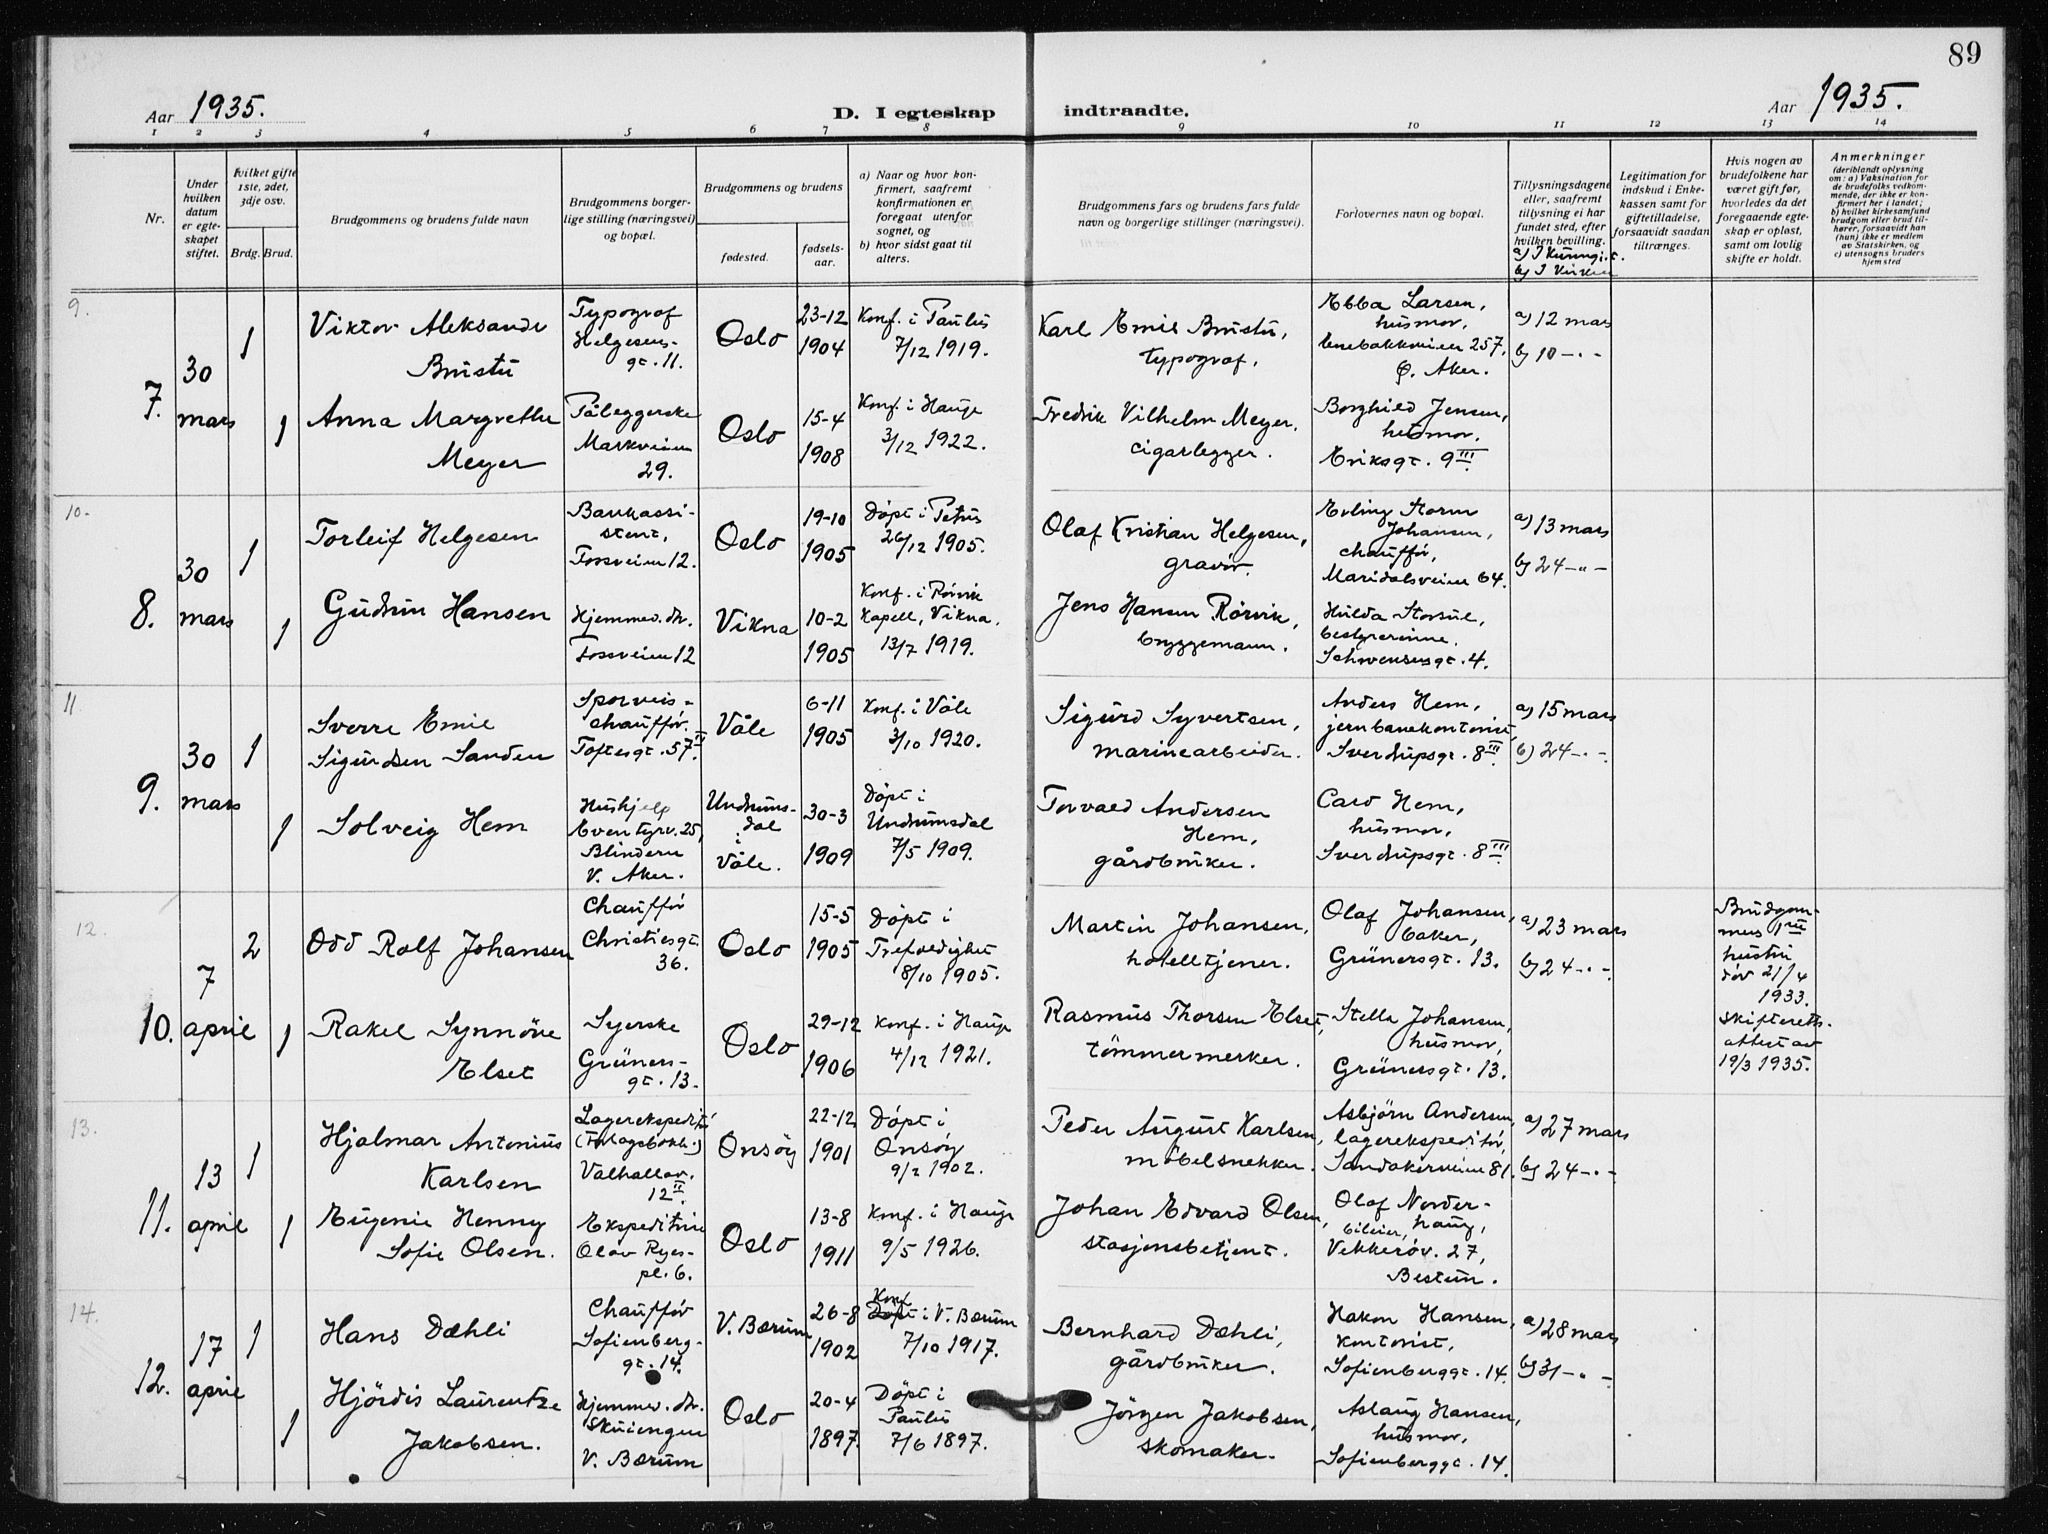 89
Aar 1935.
D. I egteskap indtraadte.
Aar 1935.
1 2 3 4 5 6 7 8 9 10 11 12 13 14
Nr.
Under
hvilken
datum
er egte-
skapet
stiftet.
hvilket gifte
1ste, 2det,
3dje osv.
Brdg. Brud.
Brudgommens og brudens fulde navn
Brudgommens borger-
lige stilling (næringsvei)
og bopæl.
Brudgommens og brudens
fødested.
fødsels-
aar.
a) Naar og hvor kon-
firmert, saafremt
konfirmationen er
foregaat utenfor
sognet, og
b) hvor sidst gaat til
alters.
Brudgommens fars og brudens fars fulde
navn og borgerlige stillinger (næringsvei).
Forlovernes navn og bopæl.
Tillysningsdagene
eller, saafremt
tillysning ei har
fundet sted, efter
hvilken bevilling.
a) I Kunngj.t.
b) I Kirken
Legitimation for
indskud i Enke-
kassen samt for
giftetilladelse,
forsaavidt saadan
tiltrænges.
Hvis nogen av
brudefolkene har
været gift før,
hvorledes da det
foregaaende egte-
skap er opløst,
samt om lovlig
skifte er holdt.
Anmerkninger
(deriblandt oplysning
om: a) Vaksination for
de brudefolks vedkom-
mende, der ikke er kon-
firmert her i landet;
b) hvilket kirkesamfund
brudgom eller brud til-
hører, forsaavidt han
(hun) ikke er medlem
av Statskirken, og
c) utensogns bruders
hjemsted
9.
7.
30
mars
1
Viktor Aleksander
Brustu
Typograf
Helgesens-
gt. 11.
Oslo
23-12
1904
Konf. i Paulus
7/12 1919.
Karl Emil Brustu,
typograf.
Ebba Larsen,
husmor,
Enebakkveien 257,
Ø. Aker.
a) 12 mars
b) 10 -"-
1
Anna Margrethe
Meyer
Påleggerske
Markveien
29.
Oslo
15-4
1908
Konf. i Hauge
3/12 1922.
Fredrik Vilhelm Meyer,
cigarlegger.
Borghild Jensen,
husmor.
Eriksgt. 9 III
10.
8.
30
mars
1
Torleif Helgesen
Bankassi-
stent,
Fossveien 12.
Oslo
19-10
1905
Döpt i Petrus
26/12 1905.
Olaf Kristian Helgesen,
gravör.
Erling Storm
Johansen,
chaufför,
Maridalsveien 64.
a) 13 mars
b) 24 -"-
1
Gudrun Hansen
Hjemmev. dtr.
Fossveien 12
Vikna
10-2
1905
Konf. i Rörvik
Kapell, Vikna.
13/7 1919.
Jens Hansen Rörvik,
bryggemann.
Hulda Storsul,
bestyrerinne.
Schwensensgt. 4.
11.
9.
30
mars
1
Sverre Emil
Sigurdsen Sanden
Sporveis-
chaufför.
Toftesgt. 57 IV
Våle
6-11
1905
Konf. i Våle
3/10 1920.
Sigurd Syvertsen,
marinearbeider.
Anders Hem,
jernbanekontorist,
Sverdrupsgt. 8 III
a) 15 mars
b) 24 -"-
1
Solveig Hem
Hushjelp
Eventyrv. 25,
Blindern
V. Aker.
Undrums-
dal
i
Våle.
30-3
1909
Döpt i
Undrumsdal
7/5 1909.
Torvald Andersen
Hem,
gårdbruker.
Caro Hem,
husmor,
Sverdrupsgt. 8 III
12.
10.
7
april
2
Odd Rolf Johansen
Chaufför
Christiesgt.
36.
Oslo
15-5
1905
Döpt i
Trefoldighet
8/10 1905.
Martin Johansen,
hotelltjener.
Olaf Johansen,
baker,
Grünersgt. 13.
a) 23 mars
b) 24 -"-
Brudgom-
mens 1ste
hustru
döv 21/4
1933.
Skifteretts-
attest av
19/3 1935.
1
Rakel Synnöve
Elset
Syerske
Grüners-
gt. 13.
Oslo
29-12
1906
Konf. i Hauge
4/12 1921.
Rasmus Thorsen Elset,
tömmermerker.
Stella Johansen,
husmor,
Grünersgt. 13.
13.
11.
13
april
1
Hjalmar Antonius
Karlsen
Lagerekspeditör
(Forlagsbokh.)
Valhallav.
12 II
Onsöy
22-12
1901
Döpt i
Onsöy
9/2 1902.
Peder August Karlsen,
möbelsnekker.
Asbjörn Andersen,
lagerekspeditör,
Sandakerveien 81.
a) 27 mars
b) 24 -"-
1
Eugenie Henny
Sofie Olsen.
Ekspeditrice
Olav Ryes-
pl. 6.
Oslo
13-8
1911
Konf. i Hauge
9/5 1926.
Johan Edvard Olsen,
stasjonsbetjent.
Olaf Norder-
haug,
bileier,
Vekkeröv. 27,
Bestun.
14.
12.
17
april
1
Hans Dæhli
Chaufför
Sofienberg-
gt. 14.
V. Bærum
26-8
1902
Konf.
Döpt i V. Bærum
7/10 1917.
Bernhard Dæhli,
gårdbruker.
Hakon Hansen,
kontorist,
Sofienberggt. 14.
a) 28 mars
b) 31 -"-
1
Hjördis Laurentze
Jakobsen.
Hjemmev. dtr.
Skuiengen
V. Bærum
Oslo
20-4
1897.
Döpt i
Paulus
7/6 1897.
Jörgen Jakobsen,
skomaker.
Aslaug Hansen,
husmor,
Sofienberggt. 14.